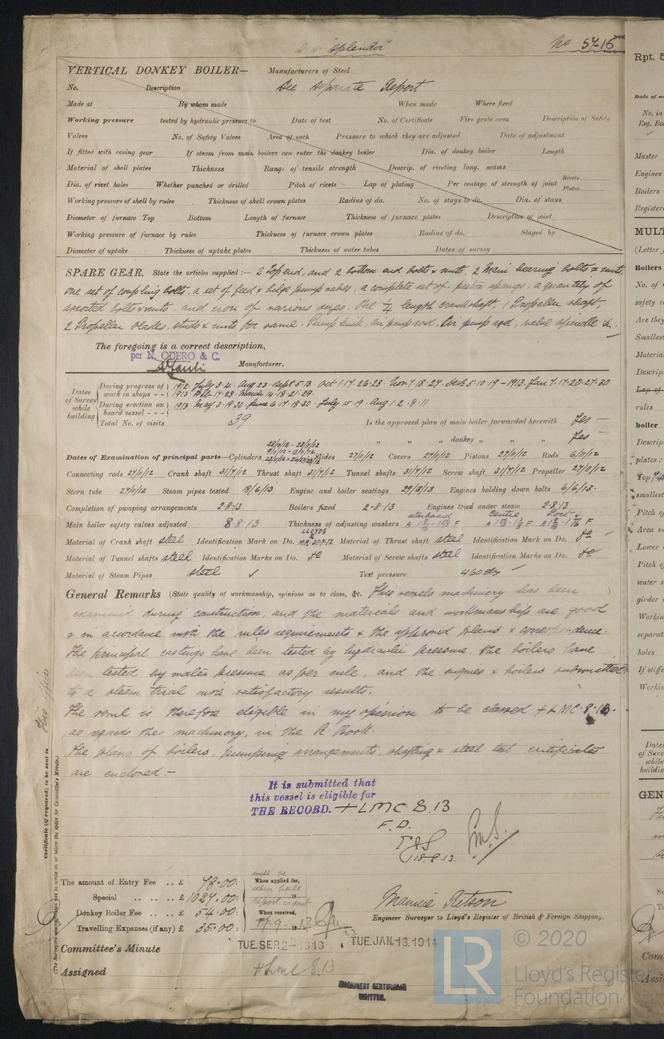 S.S. "Splendor" No 5716
VERTICAL DONKEY BOILER— Manufacturers of Steel
No. Description See Separate Report
Made at By whom made When made Where fixed
Working pressure tested by hydraulic pressure to Date of test No. of Certificate Fire grate area Description of Safety
Valves No. of Safety Valves Area of each Pressure to which they are adjusted Date of adjustment
If fitted with easing gear If steam from main boilers can enter the donkey boiler Dia. of donkey boiler Length
Material of shell plates Thickness Range of tensile strength Descrip. of riveting long. seams
Dia. of rivet holes Whether punched or drilled Pitch of rivets Lap of plating Per centage of strength of joint Rivets Plates
Working pressure of shell by rules Thickness of shell crown plates Radius of do. No. of stays to do. Dia. of stays
Diameter of furnace Top Bottom Length of furnace Thickness of furnace plates Description of joint
Working pressure of furnace by rules Thickness of furnace crown plates Radius of do. Stayed by
Diameter of uptake Thickness of uptake plates Thickness of water tubes Dates of survey
SPARE GEAR. State the articles supplied:— 2 Top end, and 2 bottom end bolts & nuts, 2 Main bearing bolts & nuts,
one set of coupling bolts, a set of feed & bilge pump valves, a complete set of piston springs, a quantity of
assorted bolts & nuts, and iron of various sizes. One 1/4 length crankshaft, 1 Propeller shaft,
2 Propeller blades, studs & nuts for same. Air pump rod, valve spindle &c.
The foregoing is a correct description,
per N. ODERO & C.
Manufacturer.
Dates of Survey while building
During progress of work in shops - - 1912 July 3.4. Aug 23. Sept 5.13 Oct 1.17.26.28 Nov 7.18.27 Dec 5.10.19 - 1913 Jan 7.17.20.27.30
1913 Feb 17.28 March 14.18.21.29
During erection on board vessel - - - 1913 May 3.19.30 June 6.17.18.30 July 15.19 Aug 1.2.9.11
Total No. of visits 39 Is the approved plan of main boiler forwarded herewith Yes
" " " donkey " " " Yes
Dates of Examination of principal parts—Cylinders Slides 27/11/12 Covers 27/11/12 Pistons 27/11/12 Rods 6/11/12
Connecting rods 27/11/12 Crank shaft 31/7/12 Thrust shaft 31/7/12 Tunnel shafts 31/7/12 Screw shaft 31/7/12 Propeller 27/11/12
Stern tube 27/11/12 Steam pipes tested 18/6/13 Engine and boiler seatings 29/3/13 Engines holding down bolts 6/6/13
Completion of pumping arrangements 2.8.13 Boilers fixed 2.8.13 Engines tried under steam 2.8.13
Main boiler safety valves adjusted 8.8.13 Thickness of adjusting washers
Material of Crank shaft steel Identification Mark on Do. LLOYDS Material of Thrust shaft steel Identification Mark on Do. do
Material of Tunnel shafts steel Identification Marks on Do. do Material of Screw shafts steel Identification Marks on Do. do
Material of Steam Pipes steel ✓ Test pressure 460 lbs
General Remarks (State quality of workmanship, opinions as to class, &c. This vessels machinery has been
examined during construction, and the materials and workmanship are good
& in accordance with the rules requirements & the approved plans & correspondence.
The principal castings have been tested by hydraulic pressure, the boilers have
been tested by water pressure as per rule, and the engines & boilers submitted
to a steam trial with satisfactory results.
The vessel is therefore eligible in my opinion to be classed + LMC 8.13.
as regards the machinery, in the R Book.
The plans of boilers, pumping arrangements, shafting & steel test certificates
are enclosed.-
It is submitted that
this vessel is eligible for
THE RECORD. + LMC 8.13
F.D.
18.8.13.
Certificate (if required) to be sent to
The amount of Entry Fee .. £ 78.00
Special .. .. £ 1027.00
Donkey Boiler Fee .. .. £ 54.00
Travelling Expenses (if any) £ 35.00
When applied for,
When received,
Engineer Surveyor to Lloyd's Register of British & Foreign Shipping.
Committee's Minute TUE. SEP. 2 - 1913 TUE. JAN. 13. 1914
Assigned + LMC 8.13
MACHINERY CERTIFICATE
WRITTEN.
LR © 2020
Lloyd's Register
Foundation